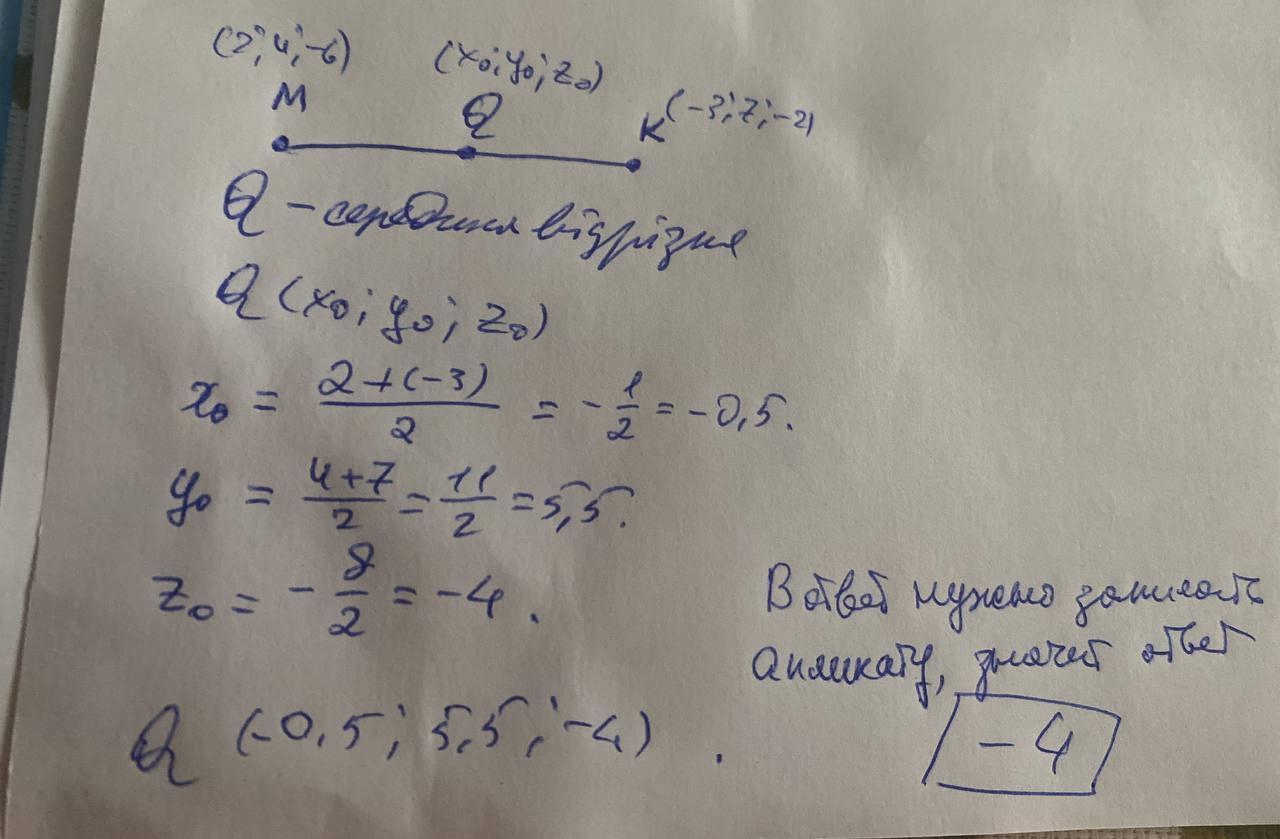 (2; 4; -6)
(x₀; y₀; z₀)
M
Q
K (-3; 7; -2)
Q – середина відрізка
Q (x₀; y₀; z₀)
x₀ = (2+(-3))/2 = -1/2 = -0,5.
y₀ = (4+7)/2 = 11/2 = 5,5.
z₀ = -8/2 = -4.
Q (-0,5; 5,5; -4).
В ответ нужно записать
апликату, значит ответ
-4